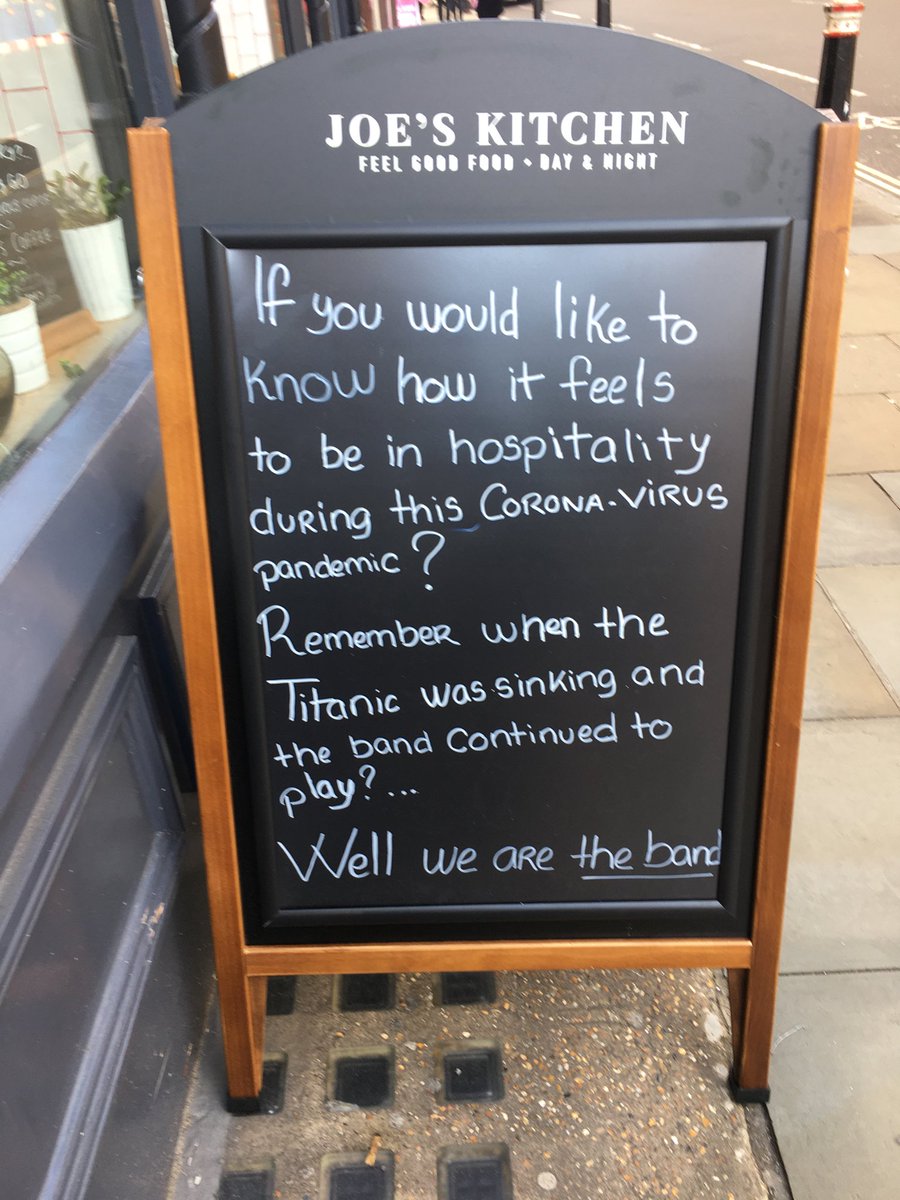 JOE'S KITCHEN
FEEL GOOD FOOD • DAY & NIGHT
If you would like to
know how it feels
to be in hospitality
during this CORONA-VIRUS
pandemic?
Remember when the
Titanic was sinking and
the band continued to
play?...
Well we are the band
COFFEE